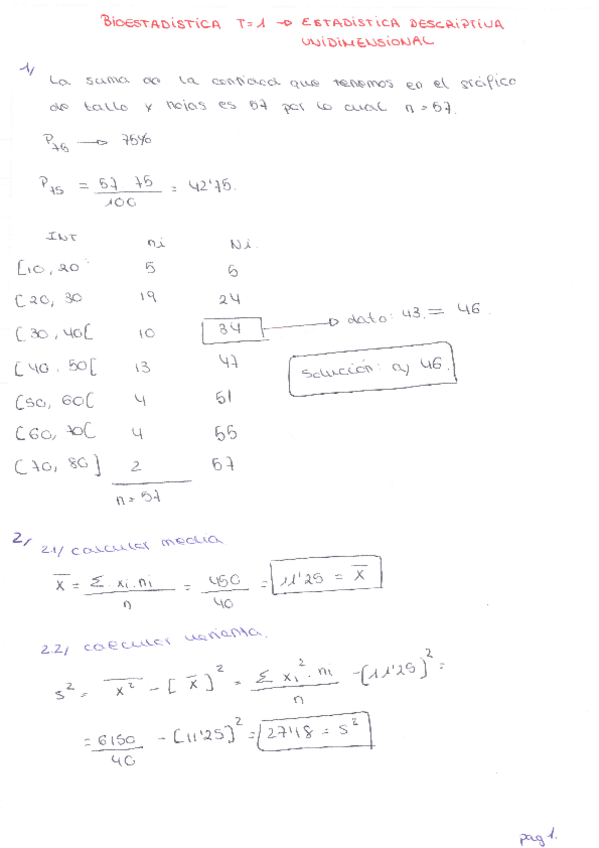 BIOESTADÍSTICA T=1 → ESTADÍSTICA DESCRIPTIVA
UNIDIMENSIONAL
1/
La suma de la cantidad que tenemos en el gráfico
de tallo y hojas es 57 por lo cual n=57.
P75 → 75%
P75 = 57 75 / 100 = 42'75.
INT ni Ni.
[10, 20 5 5
[20, 30 19 24
[30, 40[ 10 34 → dato: 43. = 46.
[40. 50[ 13 47 Solución: a) 46.
[50, 60[ 4 51
[60, 70[ 4 55
[70, 80] 2 57
n=57
2/ 2.1/ calcular media
x̄ = Σ xi.ni / n = 450 / 40 = 11'25 = x̄
2.2/ calcular varianza.
s² = x̄² - [x̄]² = Σ xi² · ni / n - [11'25]² =
= 6150 / 40 - [11'25]² = 27'18 = s²
pag 1.